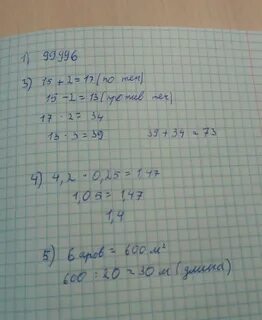 1) 99996
3) 15 + 2 = 17 (по теч)
15 - 2 = 13 (против теч)
17 · 2 = 34
13 · 3 = 39 39 + 34 = 73
4) 4,2 · 0,25 = 1.47
1,05 = 1,47
1,4
5) 6 аров = 600 м²
600 : 20 = 30 м (длина)